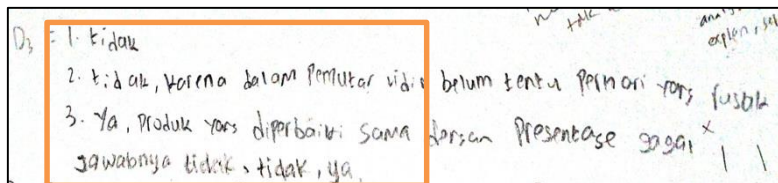 D3 = 1. tidak
2. tidak, karena dalam Pemutar vidio belum tentu Pemori yang rusak
3. Ya, Produk yang diperbaiki sama dengan Presentase gagal
jawabnya tidak, tidak, ya.